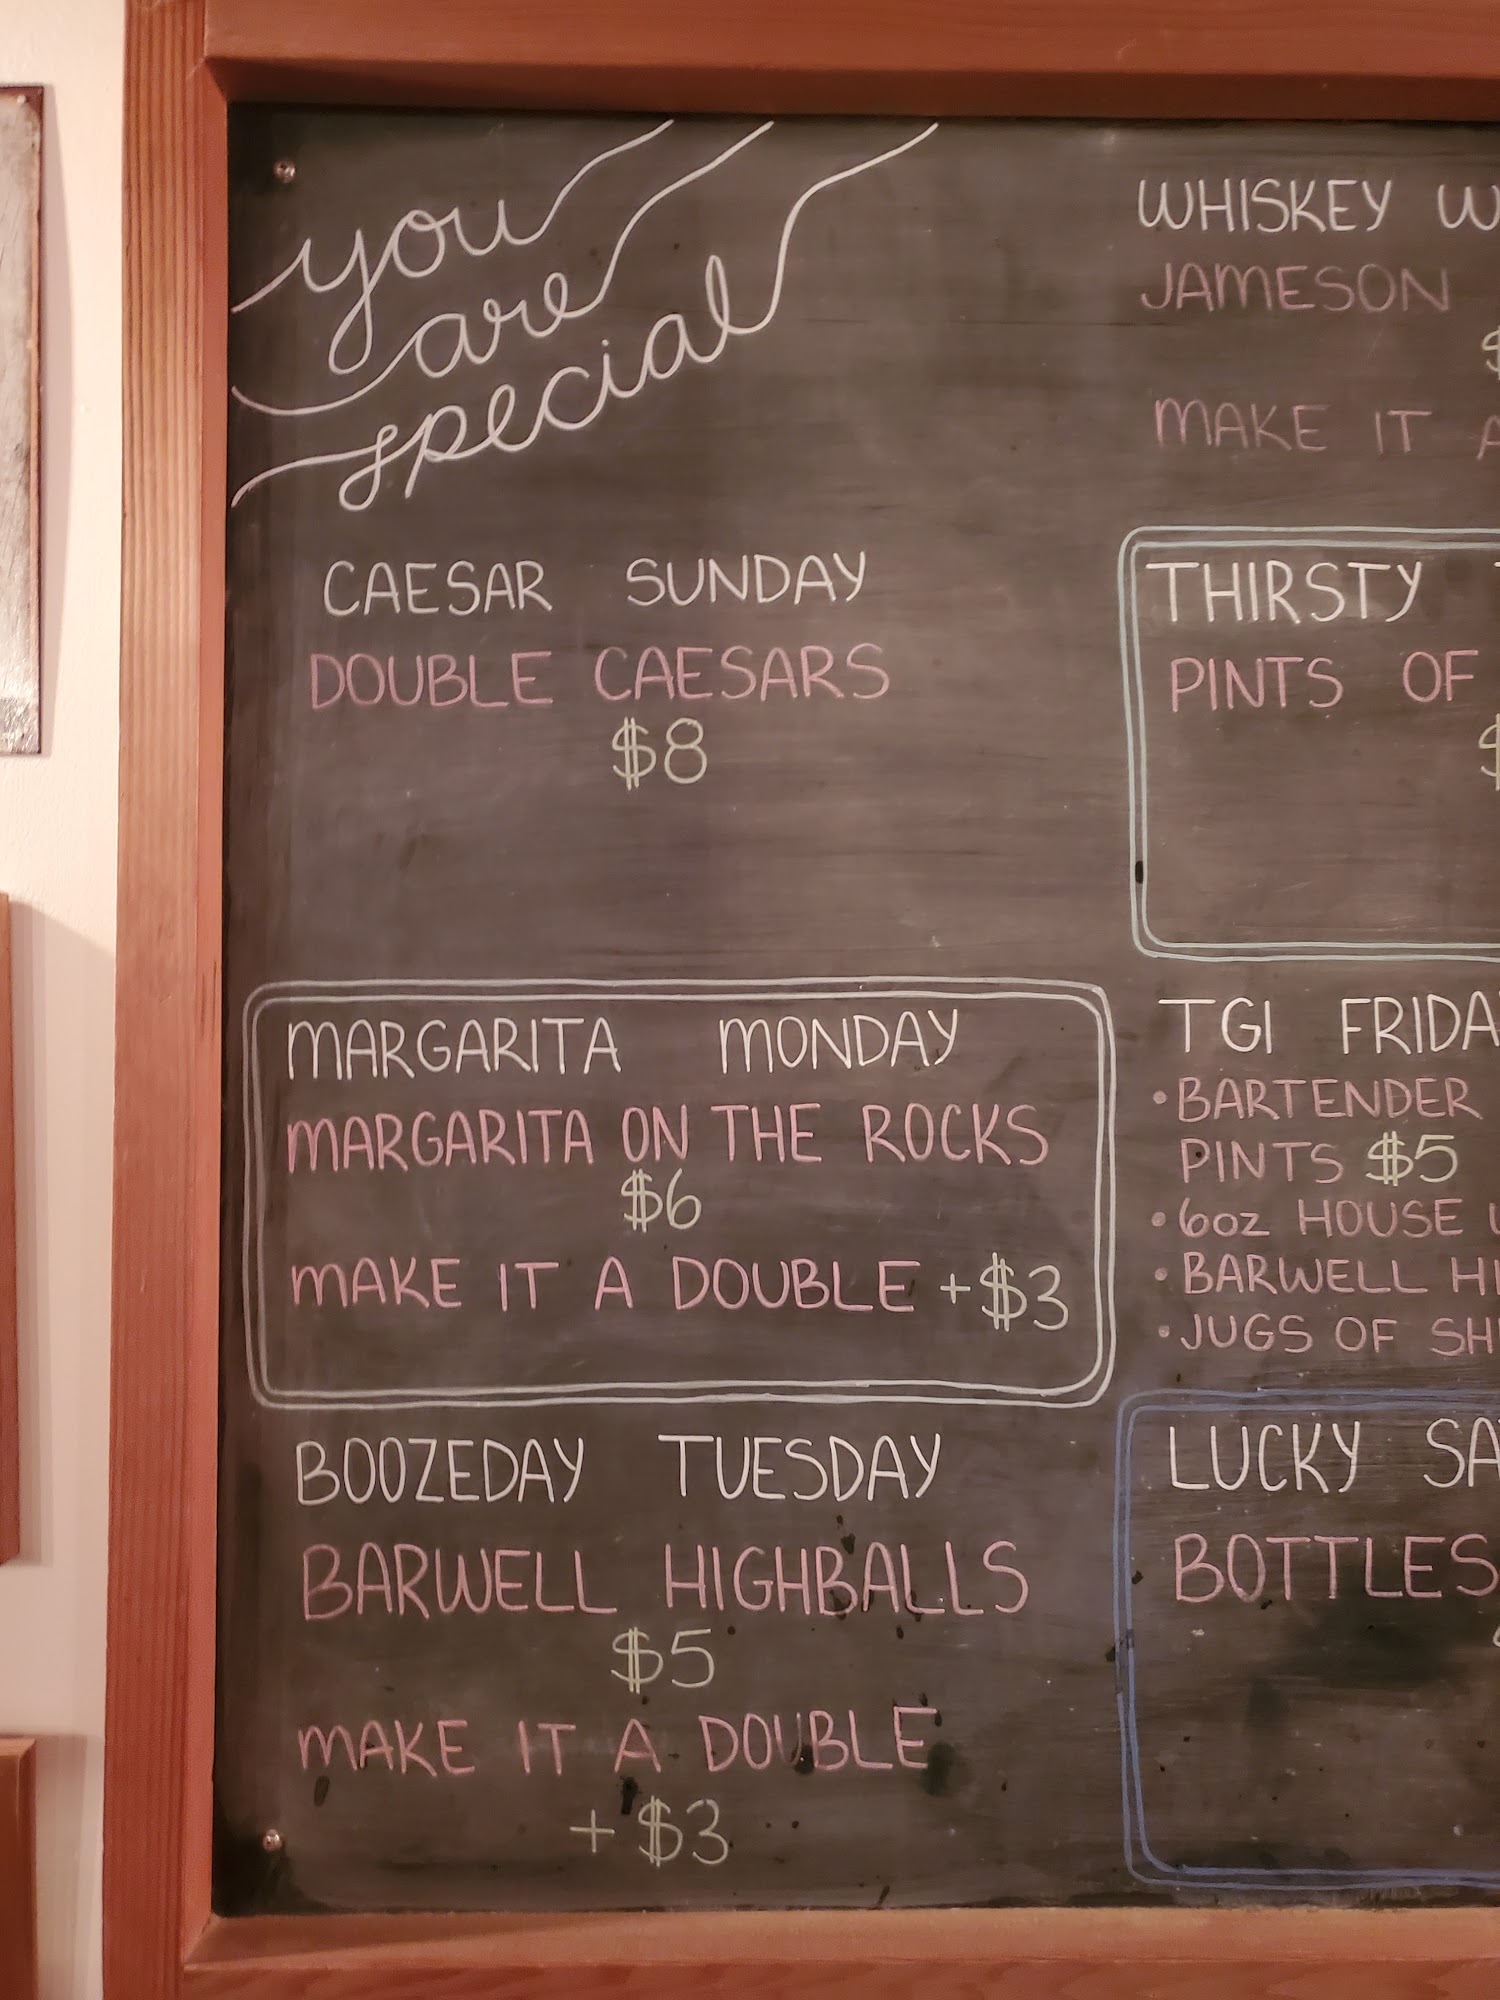 you
are
special
CAESAR SUNDAY
DOUBLE CAESARS
$8
MARGARITA MONDAY
MARGARITA ON THE ROCKS
$6
MAKE IT A DOUBLE +$3
BOOZEDAY TUESDAY
BARWELL HIGHBALLS
$5
MAKE IT A DOUBLE
+$3
WHISKEY
JAMESON
$
MAKE IT
THIRSTY
PINTS OF
$
TGI
•BARTENDER
PINTS $5
•6oz HOUSE
•BARWELL
•JUGS OF
LUCKY
BOTTLES